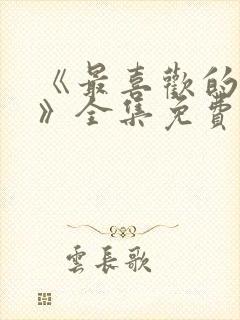 《最喜歡的
》全集免費
雲長歌